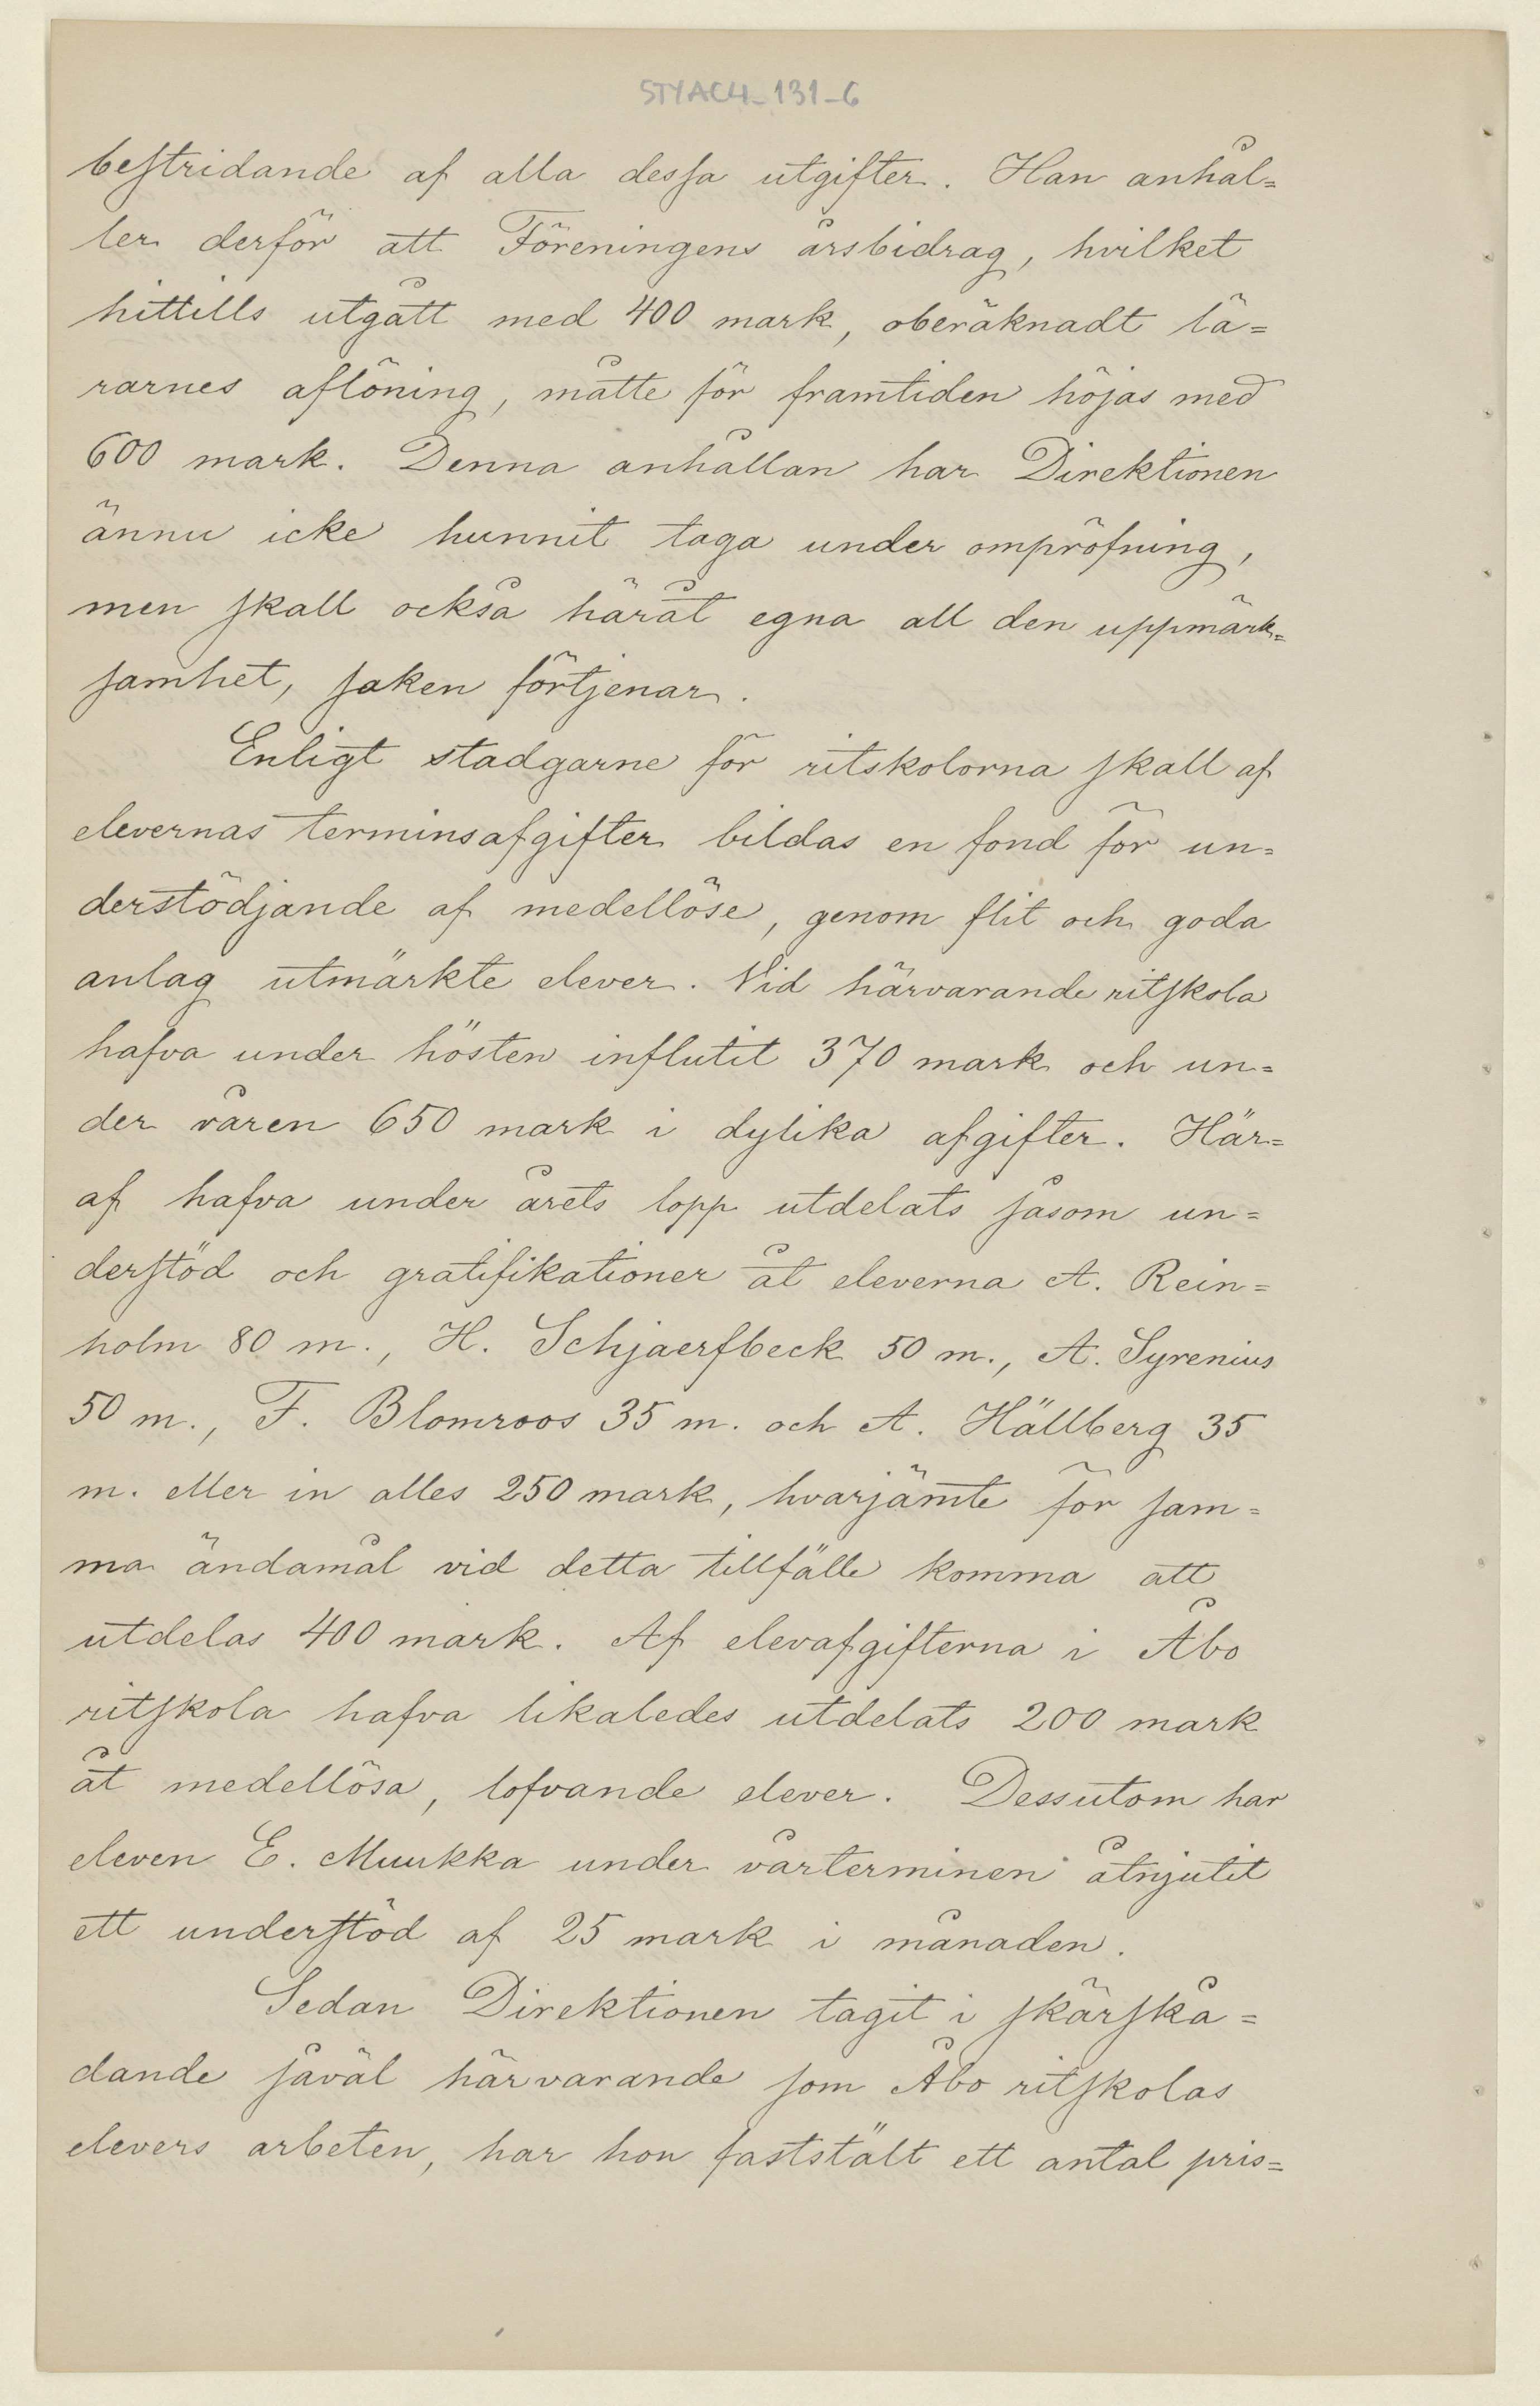 STYAC4_131_6
bestridande af alla dessa utgifter. Han anhål=
ler derför att Föreningens årsbidrag, hvilket
hittills utgått med 400 mark, oberäknadt lä=
rarnes aflöning, måtte för framtiden höjas med
600 mark. Denna anhållan har Direktionen
ännu icke hunnit taga under ompröfning,
men skall också häråt egna all den uppmärk=
samhet, saken förtjenar.
Enligt stadgarne för ritskolorna skall af
elevernas terminsafgifter bildas en fond för un=
derstödjande af medellöse, genom flit och goda
anlag utmärkte elever. Vid härvarande ritskola
hafva under hösten influtit 370 mark och un=
der våren 650 mark i dylika afgifter. Här=
af hafva under årets lopp utdelats såsom un=
derstöd och gratifikationer åt eleverna A. Rein=
holm 80 m., H. Schjaerfbeck 50 m., A. Syrenius
50 m., F. Blomroos 35 m. och A. Hällberg 35
m. eller in alles 250 mark, hvarjämte för sam=
ma ändamål vid detta tillfälle komma att
utdelas 400 mark. Af elevafgifterna i Åbo
ritskola hafva likaledes utdelats 200 mark
åt medellösa, lofvande elever. Dessutom har
eleven E. Muukka under vårterminen åtnjutit
ett understöd af 25 mark i månaden.
Sedan Direktionen tagit i skärskå=
dande såväl härvarande som Åbo ritskolas
elevers arbeten, har hon fastställt ett antal pris=